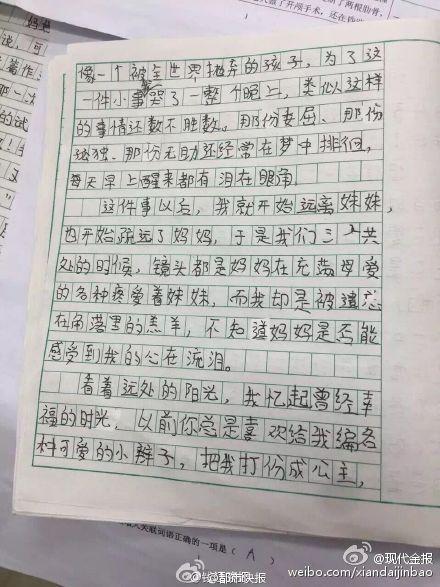 了两根肋骨，
做了开颅手术，还在昏
像一个被全世界抛弃的孩子，为了这
一件小事哭了一整个晚上，类似这样
的事情还数不胜数。那份委屈、那份
孤独、那份无助还经常在梦中排徊，
每天早上醒来都有泪在眼角。
这件事以后，我就开始远离妹妹，
也开始疏远了妈妈，于是我们三个共
处的时候，镜头都是妈妈在充满母爱
的各种疼爱着妹妹，而我却是被遗忘
在角落里的羔羊，不知道妈妈是否能
感受到我的心在流泪。
看着远处的阳光，我忆起曾经幸
福的时光，以前你总是喜欢给我编各
种可爱的小辫子，把我打份成公主，
入关联词语正确的一项是（ A ）
@现代金报
weibo.com/xiandaijinbao
@都市快报